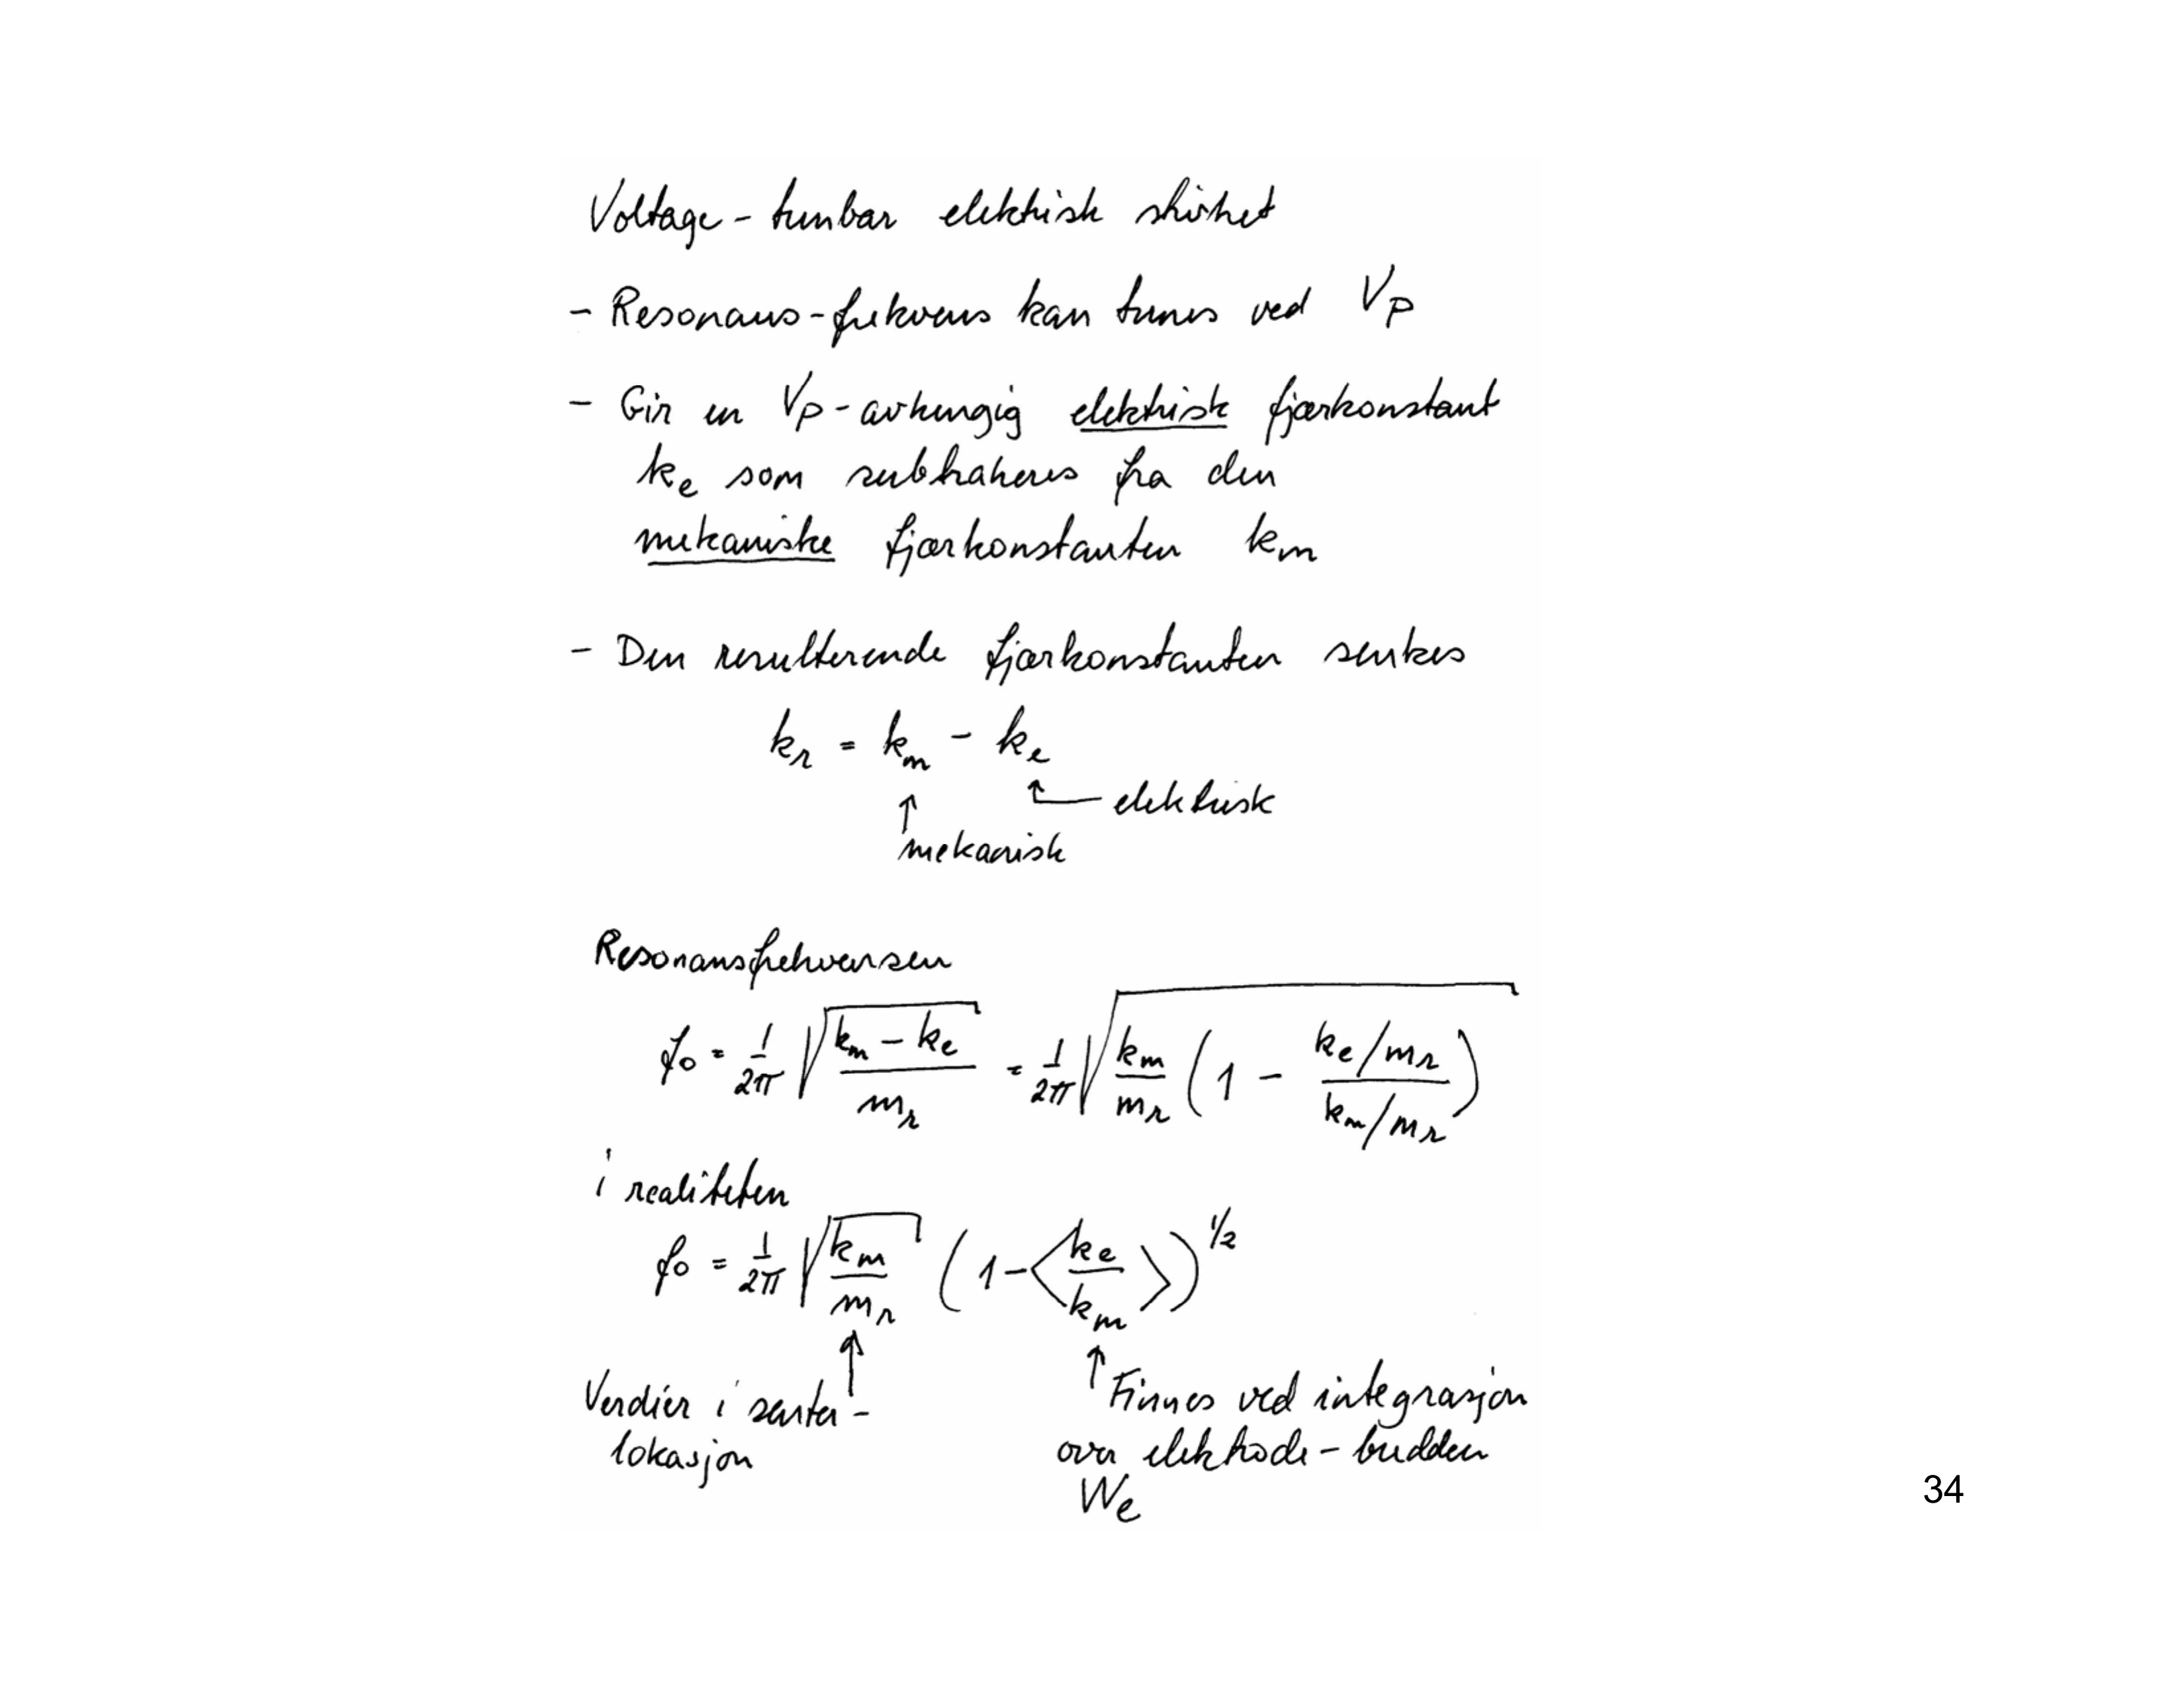 Voltage-tunbar elektrisk stivhet
- Resonans-frekvens kan tunes ved V_P
- Gir en V_P-avhengig elektrisk fjærkonstant
k_e som subtraheres fra den
mekaniske fjærkonstanten k_m
- Den resulterende fjærkonstanten senkes
k_r = k_m - k_e
↑ elektrisk
↑ mekanisk
Resonansfrekvensen
f_0 = 1/2π √((k_m - k_e)/m_r) = 1/2π √(k_m/m_r (1 - (k_e/m_r)/(k_m/m_r)))
i realiteten
f_0 = 1/2π √(k_m/m_r) (1 - <k_e/k_m>)^1/2
↑ Verdier i senter-
lokasjon
↑ Finnes ved integrasjon
over elektrode-bredden
W_e
34